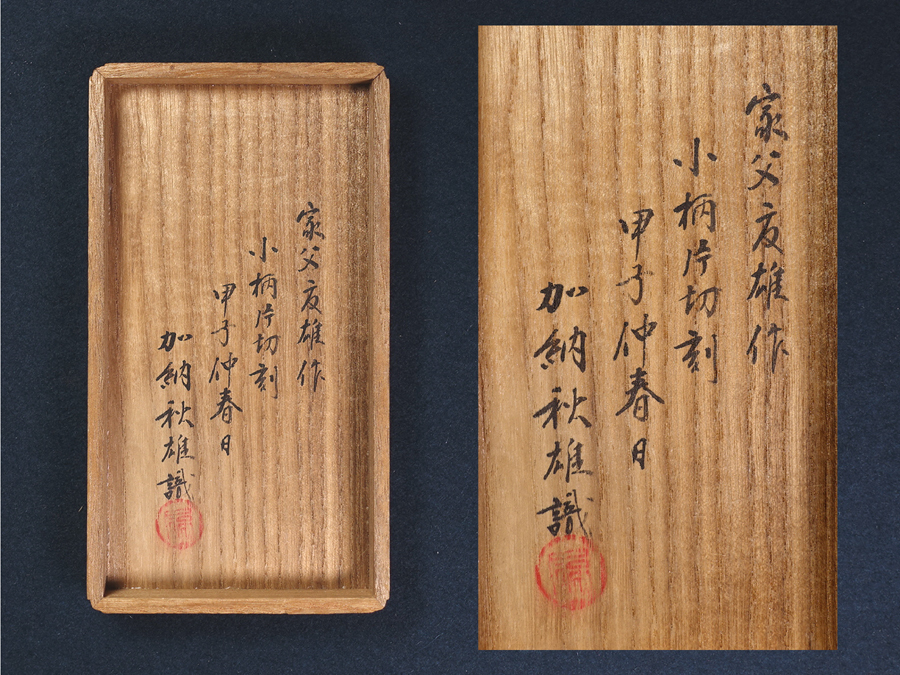 家父夏雄作
小柄片切刻
甲子仲春日
加納秋雄識
家父夏雄作
小柄片切刻
甲子仲春日
加納秋雄識